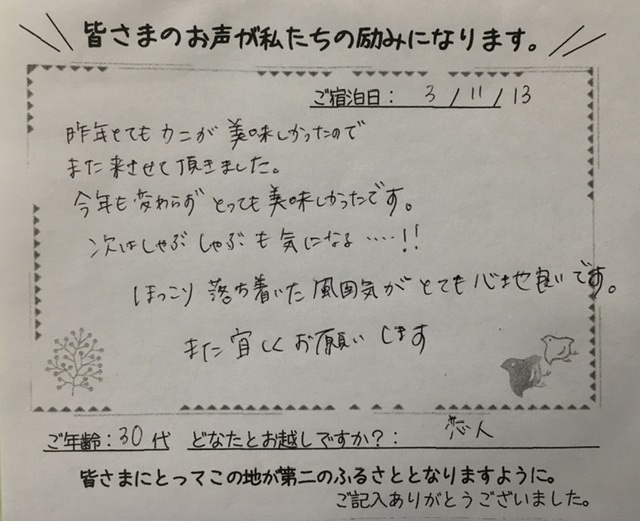 皆さまのお声が私たちの励みになります。
ご宿泊日: 3/11/13
昨年とてもカニが美味しかったので
また来させて頂きました。
今年も変わらずとっても美味しかったです。
次はしゃぶしゃぶも気になる……!!
ほっこり落ち着いた風囲気がとても心地良いです。
また宜しくお願いします
ご年齢:30代 どなたとお越しですか?: 恋人
皆さまにとってこの地が第二のふるさととなりますように。
ご記入ありがとうございました。